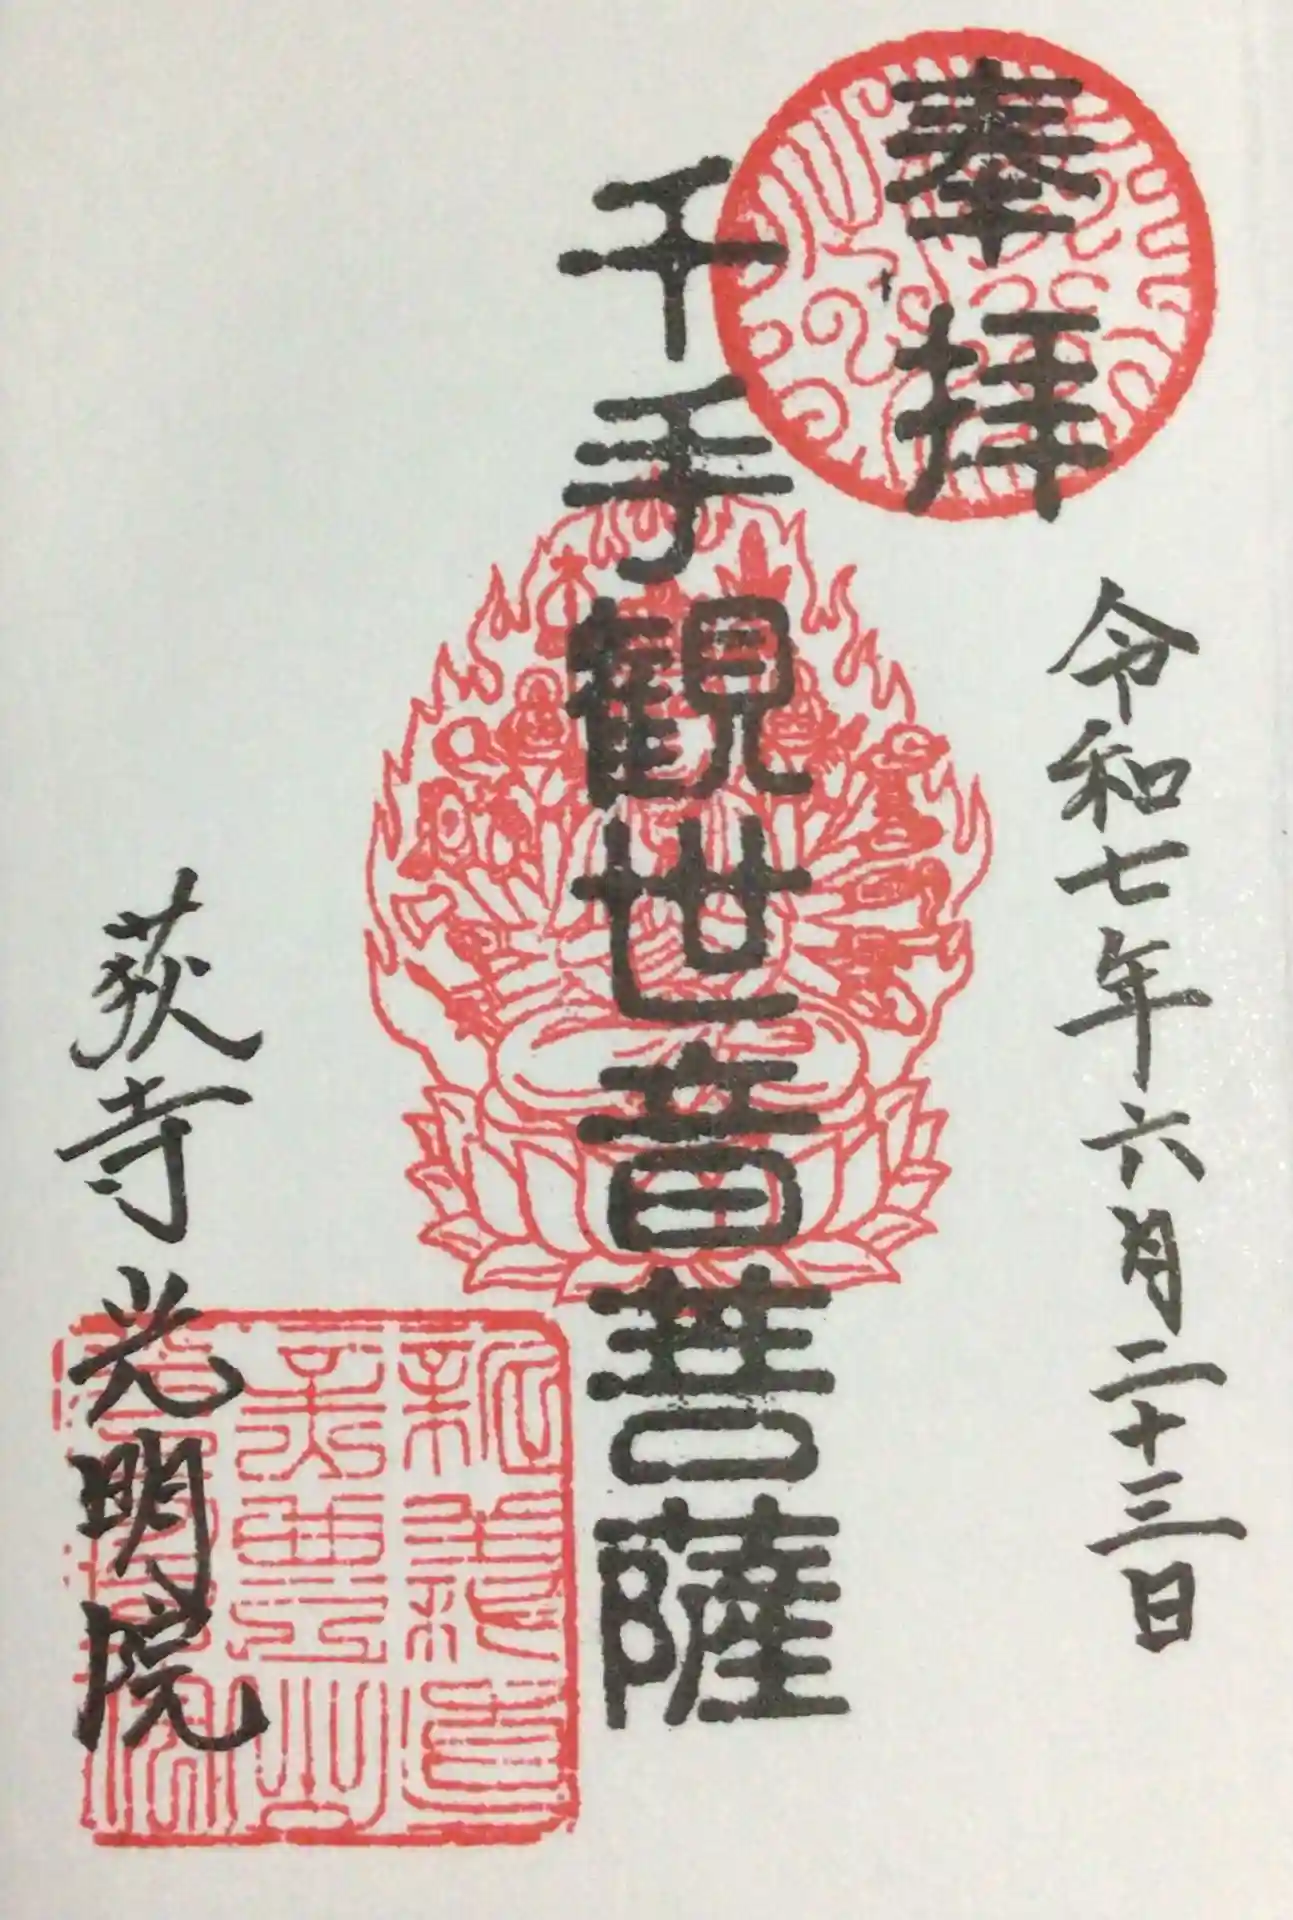 奉拝
令和七年六月二十三日
千手観世音菩薩
荻寺 光明院